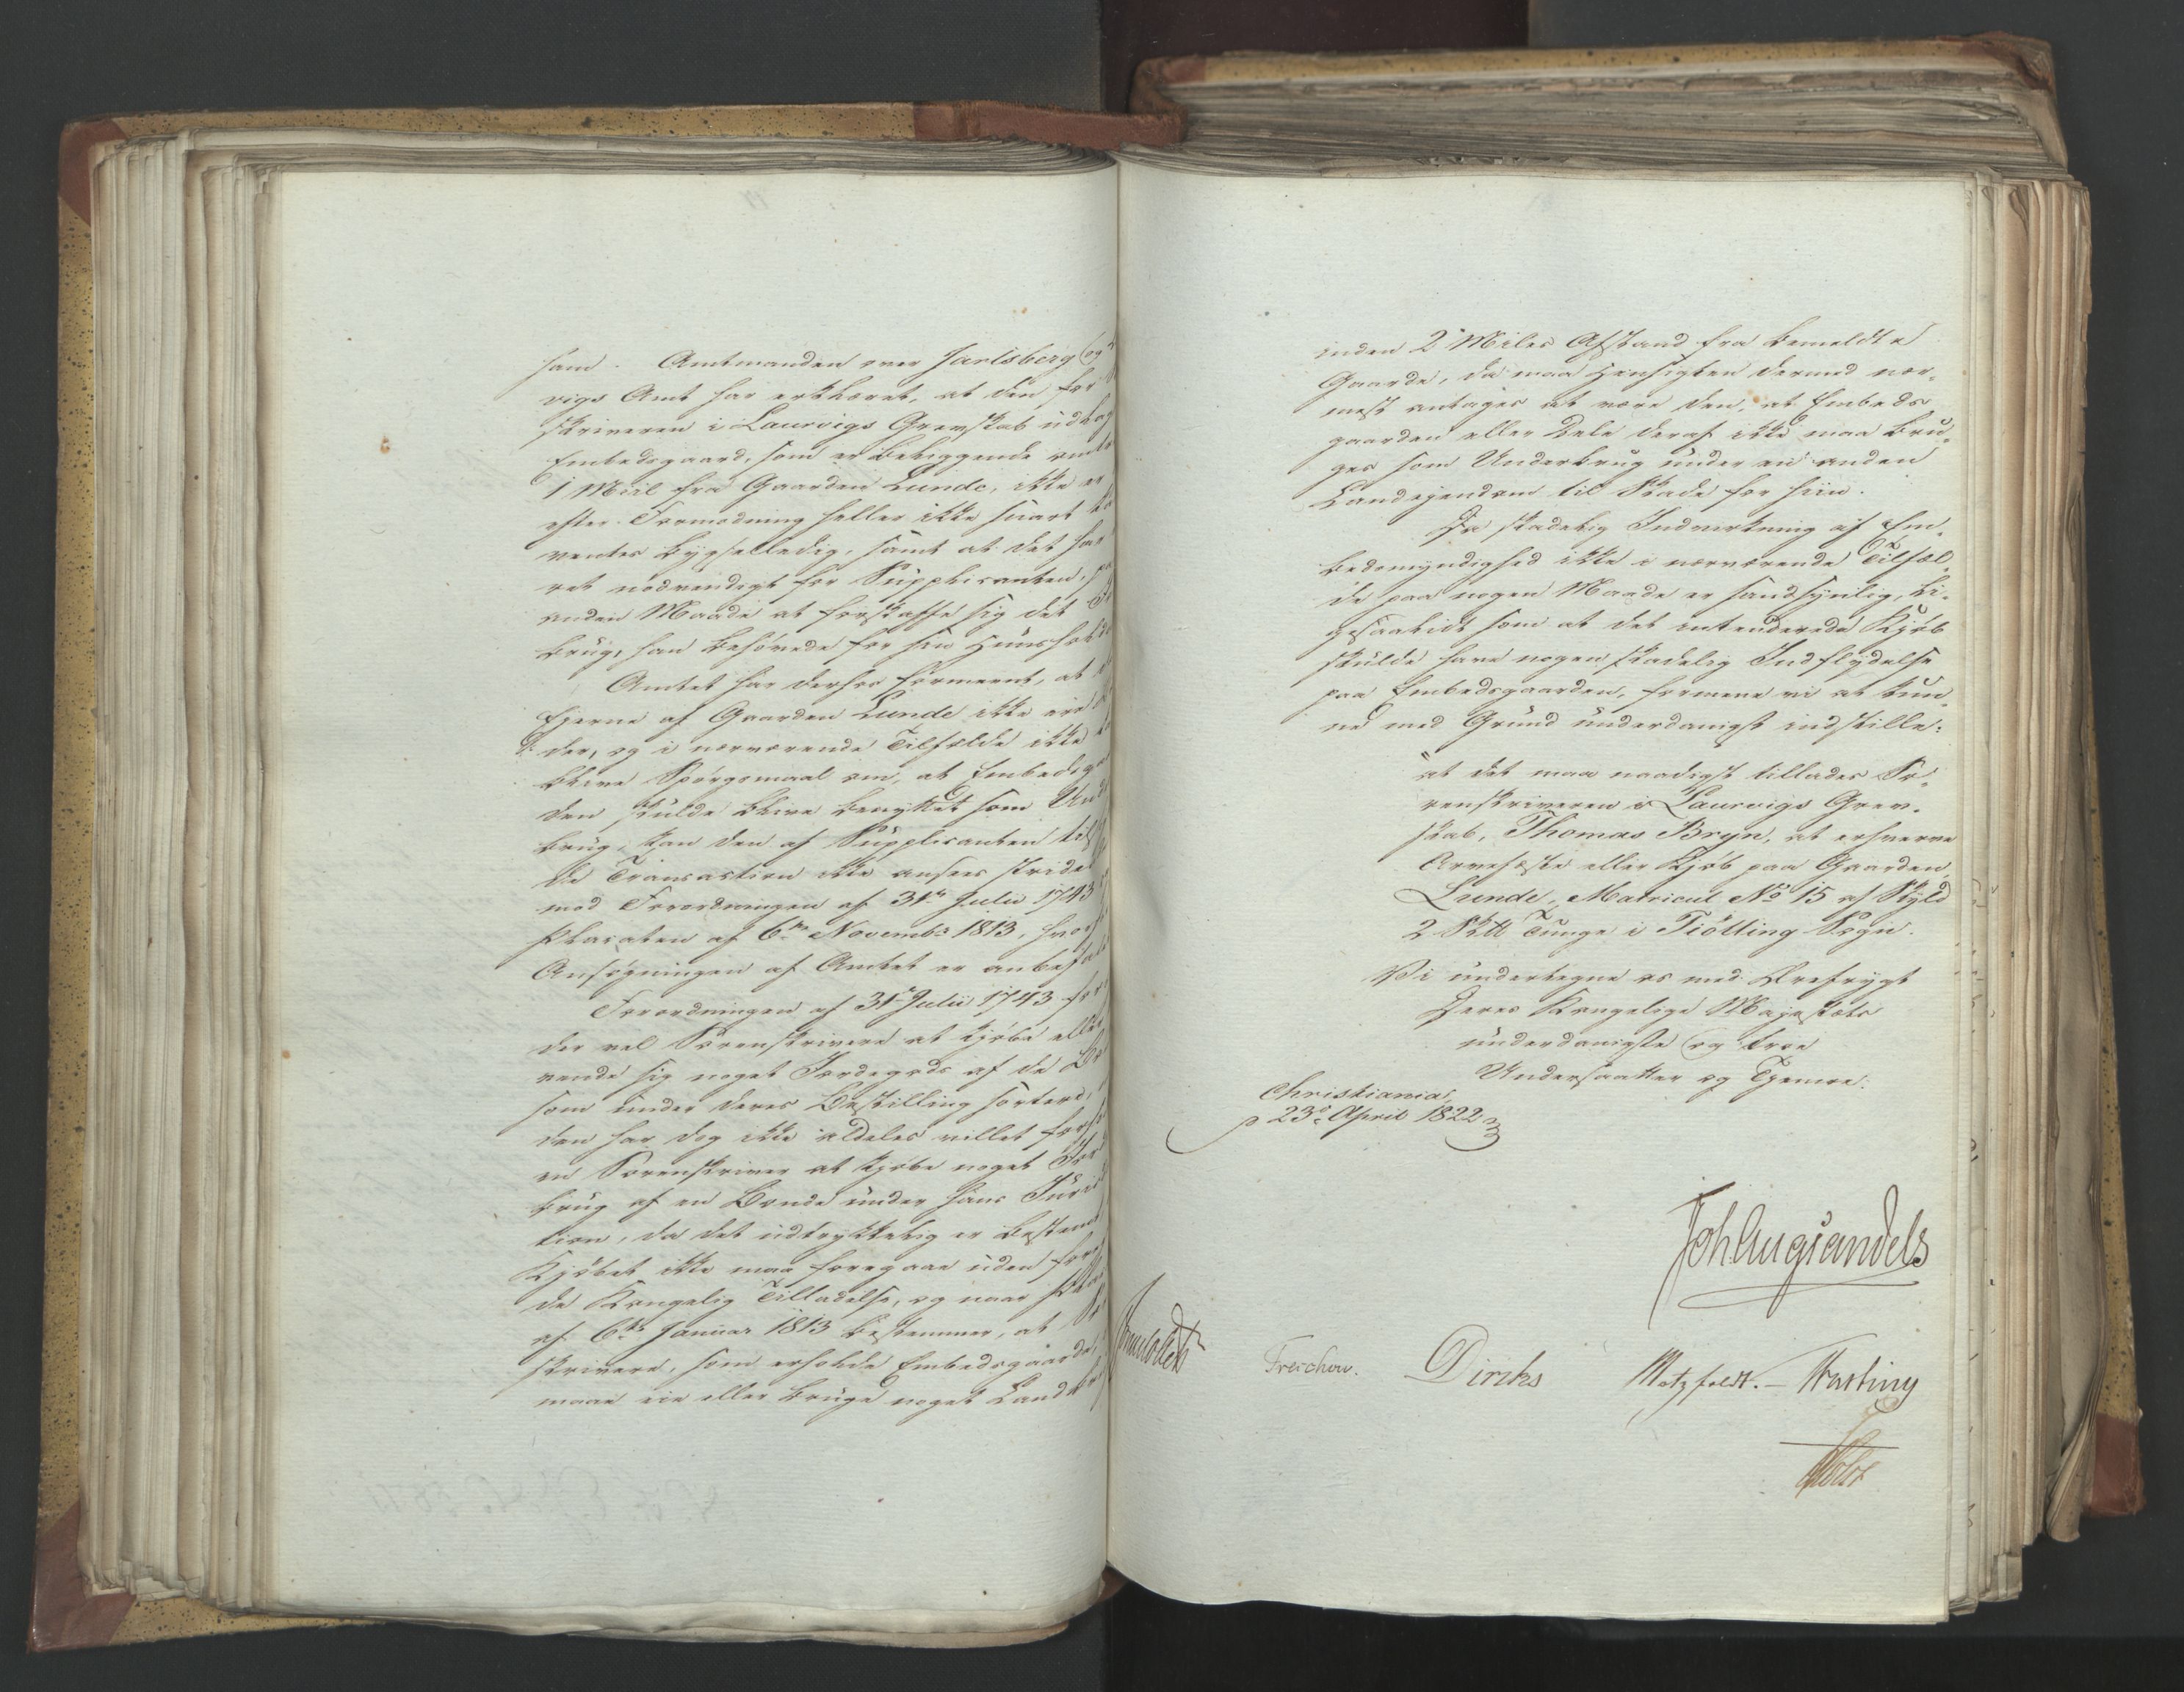 ham. Amtmanden over Jarlsberg og
vigs Amt har erklæret, at den for
skriveren i Laurvigs Grevskab udlag
Embedsgaard, som er beliggende omtr
1 Miil fra Gaarden Lunde, ikke er
efter Formodning heller ikke snart
ventes bygselledig, samt at det har
ret nødvendigt for Supplicanten, pa
anden Maade at forskaffe sig det
brug, han behøvede for sin Huusholdn
Amtet har derhos formeent, at
Ejerne af Gaarden Lunde ikke ere
der, og i nærværende Tilfælde ikke
blive Spørgsmaal om, at Embedsga
den skulde blive benyttet som Und
brug, kan den af Supplicanten
de Transaction ikke ansees stride
mod Forordningen af 31te Julii 1743
Placaten af 6te Novembr 1813, hvor
Ansøgningen af Amtet er anbefal
Forordningen af 31te Julii 1743 for
der vel Sorenskrivere at kjøbe eller
vende sig noget Jordegods af de Bø
som under deres Bestilling sortere,
den har dog ikke aldeles villet for
en Sorenskriver at kjøbe noget Jord
brug af en Bonde under hans Juris
tion, da det udtrykkelig er bestemt
Kjøbet ikke maa foregaae uden
de Kongelig Tilladelse, og naar Plac
af 6te Januar 1813 bestemmer, at So
skrivere, som erholde Embedsgaarde,
maae eie eller bruge noget Land
inden 2 Miles Afstand fra bemeldte
Gaarde, da maa Hensigten dermed nær-
mest antages at være den, at Embeds
gaarden eller Dele deraf ikke maa bru-
ges som Underbrug under en anden
Landejendom til Skade for hiin.
Da skadelig Indvirkning af Em-
bedsmyndighed ikke i nærværende Tilfæl-
de paa nogen Maade er sandsynlig, li-
gesaalidt som at det intenderede Kjøb
skulde have nogen skadelig Indflydelse
paa Embedsgaarden, formene vi at kun-
ne med Grund underdanigst indstille:
"at det maa naadigst tillades So-
renskriveren i Laurvigs Grev-
skab, Thomas Bryn, at erhverve
Arvefæste eller Kjøb paa Gaarden
Lunde, Matricul No 15 af Skyld
2 Skll Tunge i Tiölling Sogn.
Vi undertegne os med Ærefrygt
Deres Kongelige Majestæts
underdanigste og troe
Undersaatter og Tjenere.
Christiania,
d 23de April 1822
Joh Aug Sandels
Treschow. Diriks Motzfeldt. Fasting
Holst